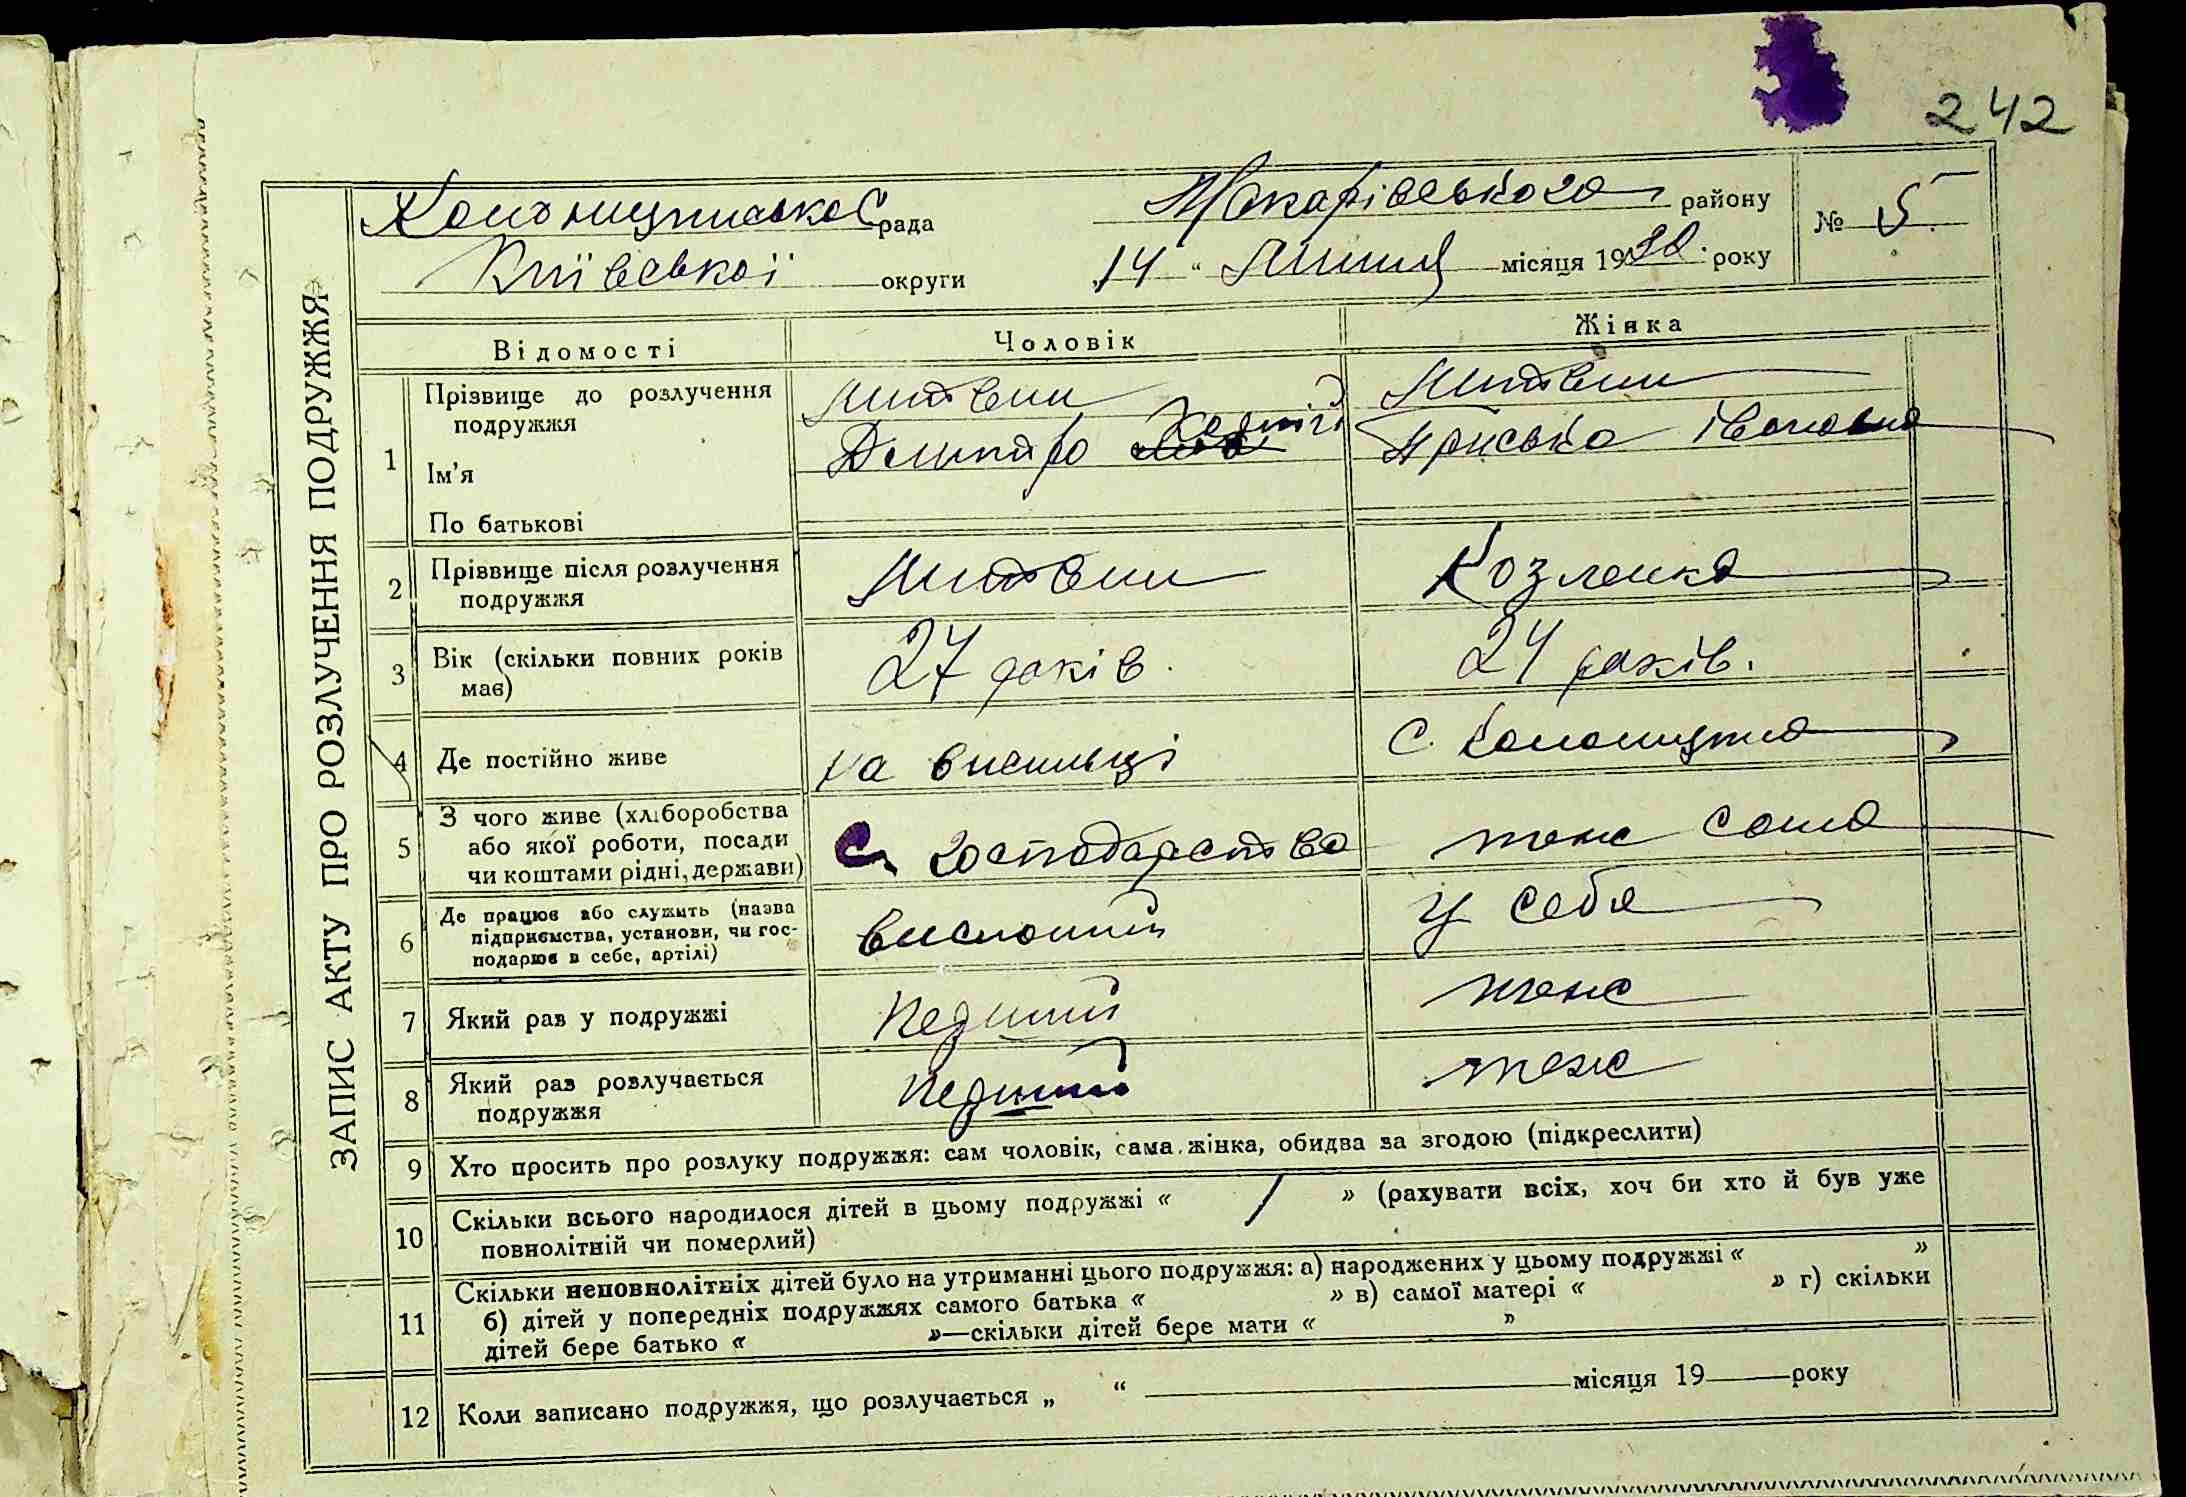 242
Колонщинської рада Макарівського району № 5
Київської округи „14“ Липня місяця 1930 року
ЗАПИС АКТУ ПРО РОЗЛУЧЕННЯ ПОДРУЖЖЯ
Відомості Чоловік Жінка
1 Прізвище до розлучення подружжя Литвин Литвин
Ім'я Дмитро Приська Івановна
По батькові
2 Прізвище після розлучення подружжя Литвин Козленко
3 Вік (скільки повних років має) 27 років. 24 років.
4 Де постійно живе на висильці с. Колонщина
5 З чого живе (хліборобства або якої роботи, посади чи коштами рідні, держави) С. господарство теж сама
6 Де працює або служить (назва підприємства, установи, чи господарює в себе, артілі) у себя
7 Який раз у подружжі Перший теж
8 Який раз розлучається подружжя Перший теж
9 Хто просить про розлуку подружжя: сам чоловік, сама жінка, обидва за згодою (підкреслити)
10 Скільки всього народилося дітей в цьому подружжі « / » (рахувати всіх, хоч би хто й був уже
повнолітній чи померлий)
11 Скільки неповнолітніх дітей було на утриманні цього подружжя: а) народжених у цьому подружжі « »
б) дітей у попередніх подружжях самого батька « » в) самої матері « » г) скільки
дітей бере батько « »—скільки дітей бере мати « »
12 Коли записано подружжя, що розлучається „ “ місяця 19 року